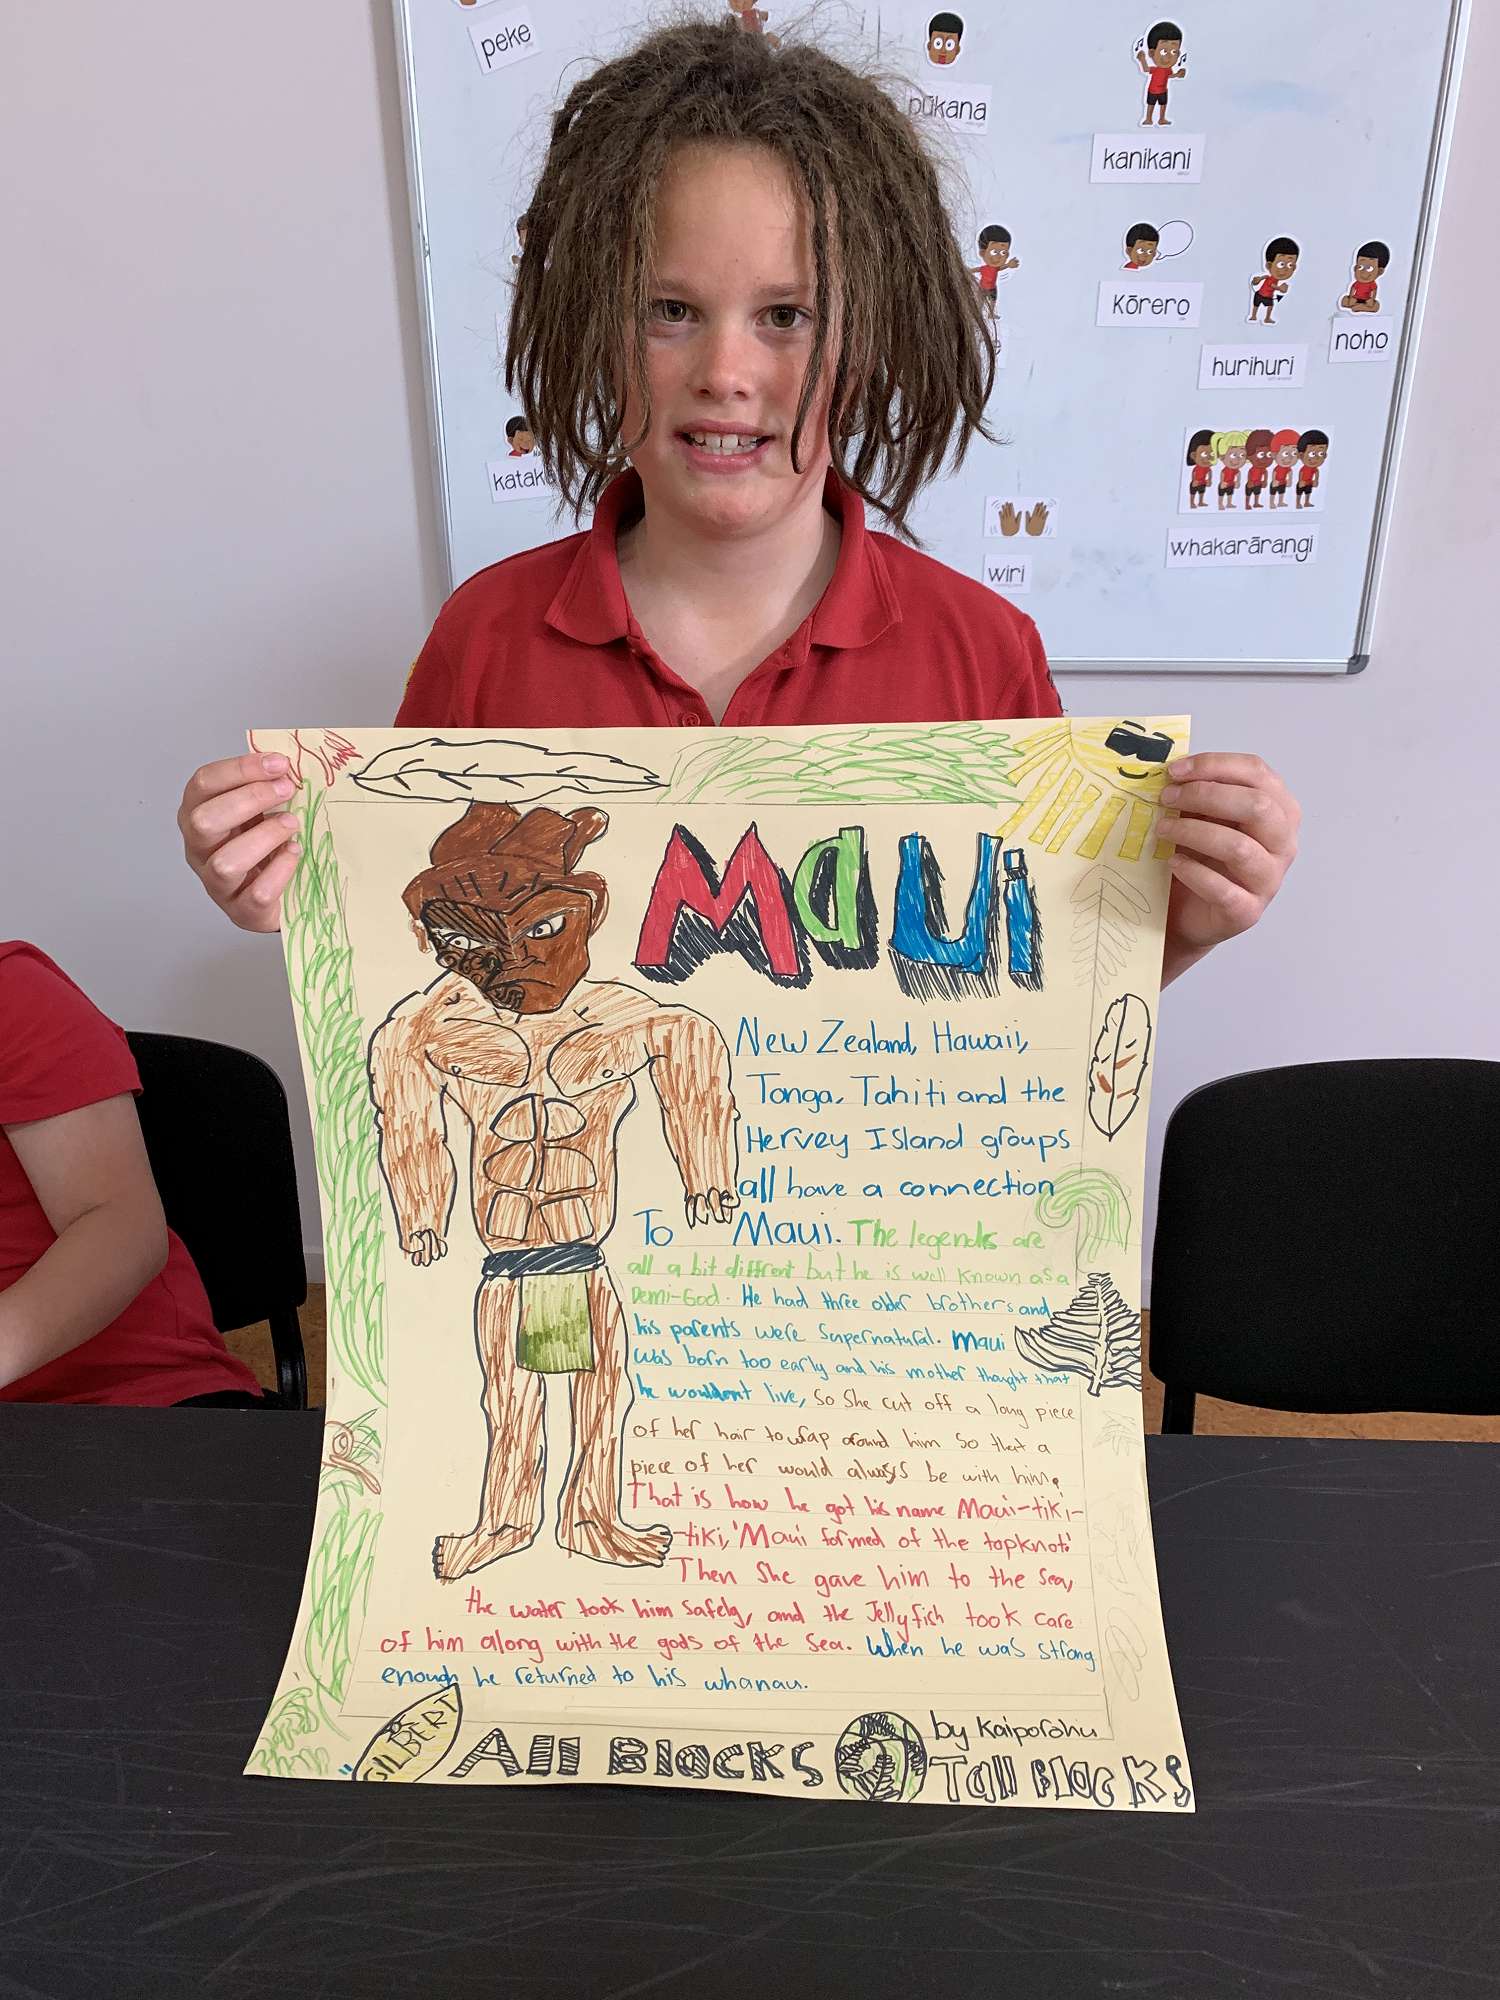 peke
pūkana
kanikani
kōrero
hurihuri
noho
whakarārangi
wiri
Maui
New Zealand, Hawaii,
Tonga, Tahiti and the
Hervey Island groups
all have a connection
To Maui. The legends are
all a bit diffrent but he is well known as a
Demi-God. He had three older brothers and
his parents were Supernatural. Maui
was born too early and his mother thought that
he wouldent live, so she cut off a long piece
of her hair to wrap around him so that a
piece of her would always be with him.
That is how he got his name Maui-tiki-
-tiki, 'Maui formed of the topknot.'
Then She gave him to the sea,
the water took him safely, and the Jellyfish took care
of him along with the gods of the sea. When he was strong
enough he returned to his whanau.
GILBERT
All Blacks
by Kaiporohu
Tall Blacks